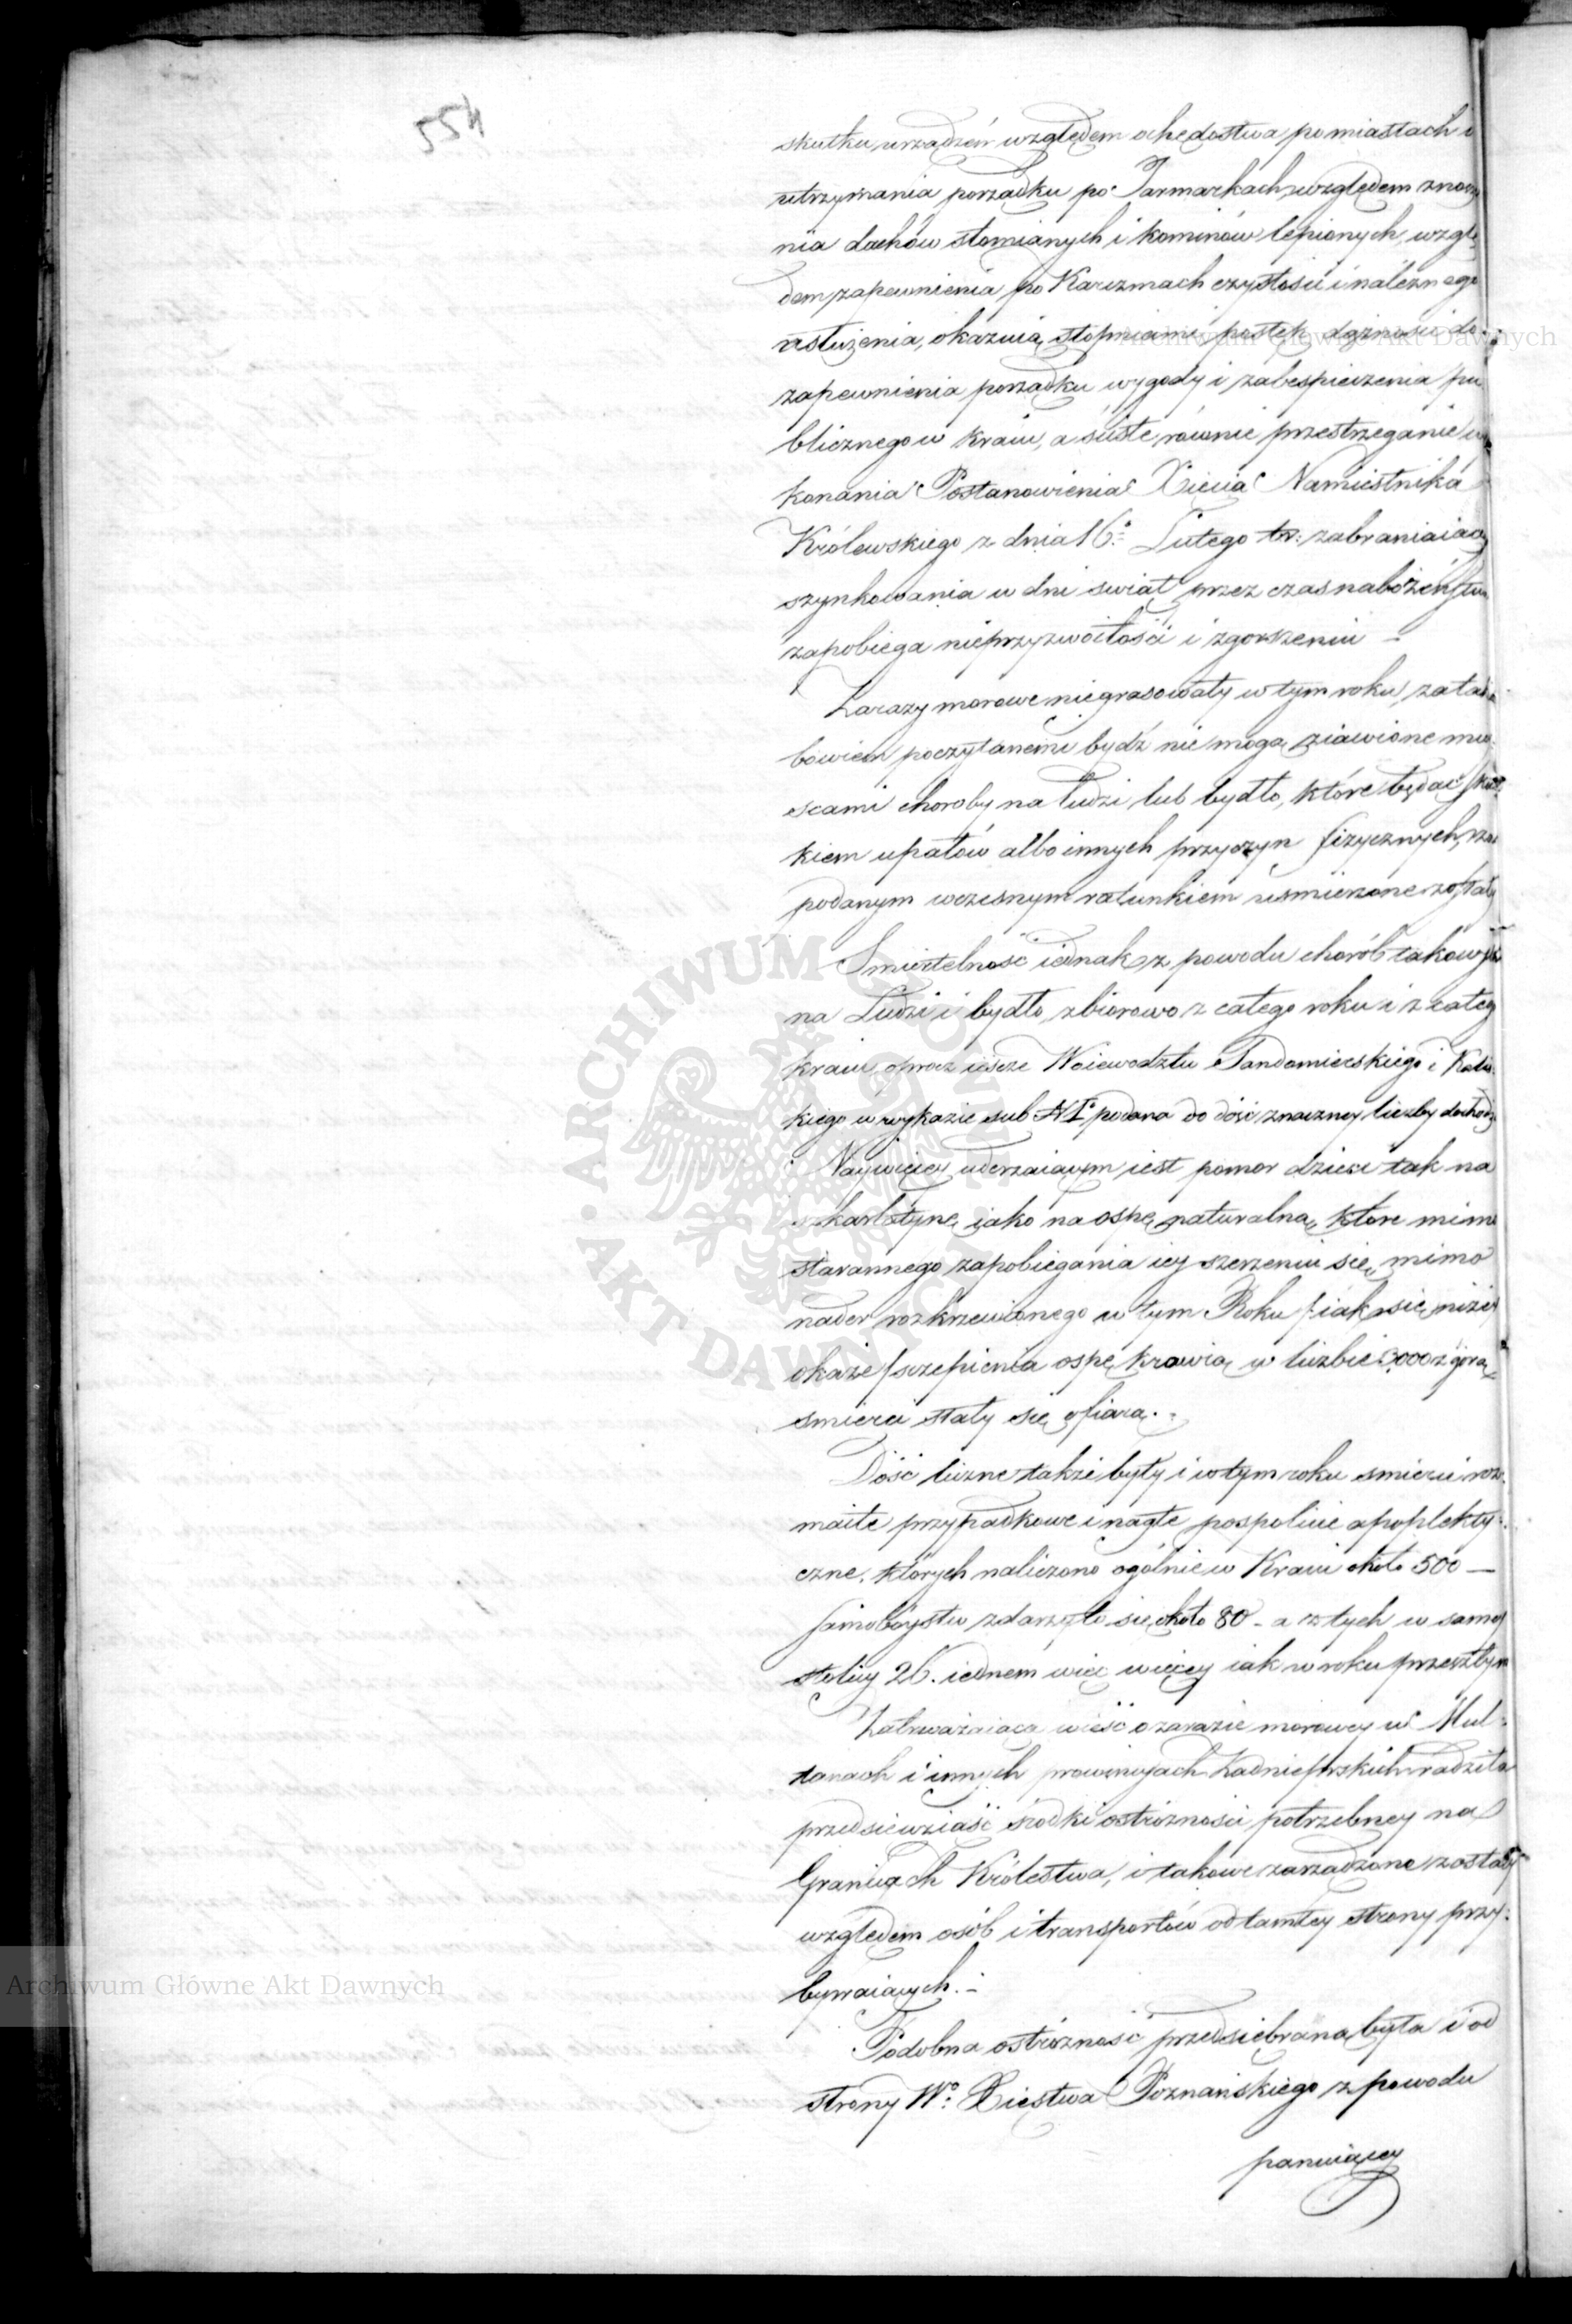 554
skutku urządzeń względem ochędostwa po miastach i
utrzymania porządku po Jarmarkach, względem znosze
nia dachów słomianych i kominów lepionych, wzglę
dem zapewnienia po Karczmach czystości i należnego
usłużenia, okazuią stopniami postęp dążności do
zapewnienia porządku wygody i zabespieczenia pu
blicznego w kraiu, a ściśle równie przestrzeganie wy
konania Postanowienia Xięcia Namiestnika
Królewskiego z dnia 16º Lutego tr: zabraniaiącego
szynkowania w dni swiąt przez czas nabożeństwa
zapobiega nieprzyzwoitości i zgorszeniu –
Zarazy morowe niegrasowały w tym roku, za takie
bowiem poczytanemi bydź nie mogą ziawione miey
scami choroby na ludzi lub bydło, które będąc skut
kiem upałów albo innych przyczyn fizycznych, za
podanym wczesnym ratunkiem usmierzone zostały
Smiertelność iednak z powodu chorób takowych
na Ludzi i bydło zbiorowo z całego roku i z całego
kraiu oprocz ieszcze Woiewodztw Sandomierskiego i Kalis
kiego w wykazie sub Nº I podana do dość znaczney liczby dochodzi
Naywięcey uderzaiącym iest pomor dzieci tak na
szkarlatynę iako na ospę naturalną, które mimo
starannego zapobiegania iey szerzeniu się, mimo
nader rozkrzewionego w tym Roku / iak się niżey
okaże / szczepienia ospę krowią w liczbie 3000 z górą
smierci stały się ofiarą.
Dość liczne także były i w tym roku smierci roz
maite przypadkowe i nagłe pospolicie apoplekty:
czne, których naliczono ogólnie w Kraiu około 500 —
Samobóystw zdarzyło się około 80 – a z tych w samey
stolicy 26. iednem więc więcey iak w roku przeszłym
Zatrważaiąca wieść o zarazie morowey w Mul:
tanach i innych prowincyjach Zadniestrskich radziła
przedsiewziąść srodki ostrożności potrzebney na
Granicach Królestwa, i takowe zarządzone zostały
względem osób i transportów od tamtey strony przy:
bywaiących. –
Podobna ostrożność przedsiębrana była i od
strony Wº: Xięstwa Poznańskiego z powodu
panuiącey
Archiwum Główne Akt Dawnych
Archiwum Główne Akt Dawnych
ARCHIWUM GŁÓWNE
AKT DAWNYCH